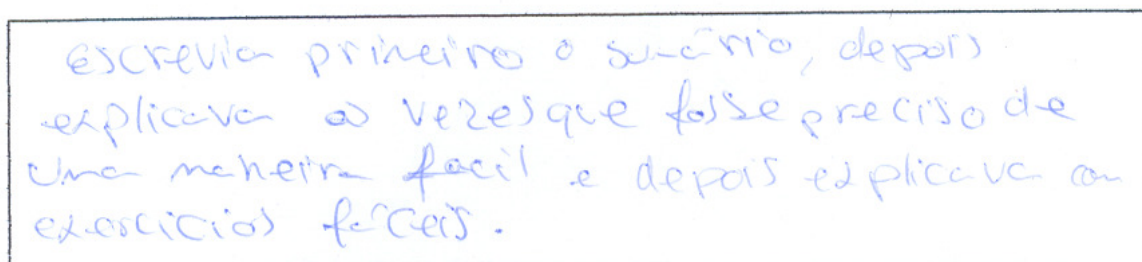 escrevia primeiro o sumário, depois
explicava as vezes que fosse preciso de
uma maneira facil e depois explicava com
exercicios fáceis.